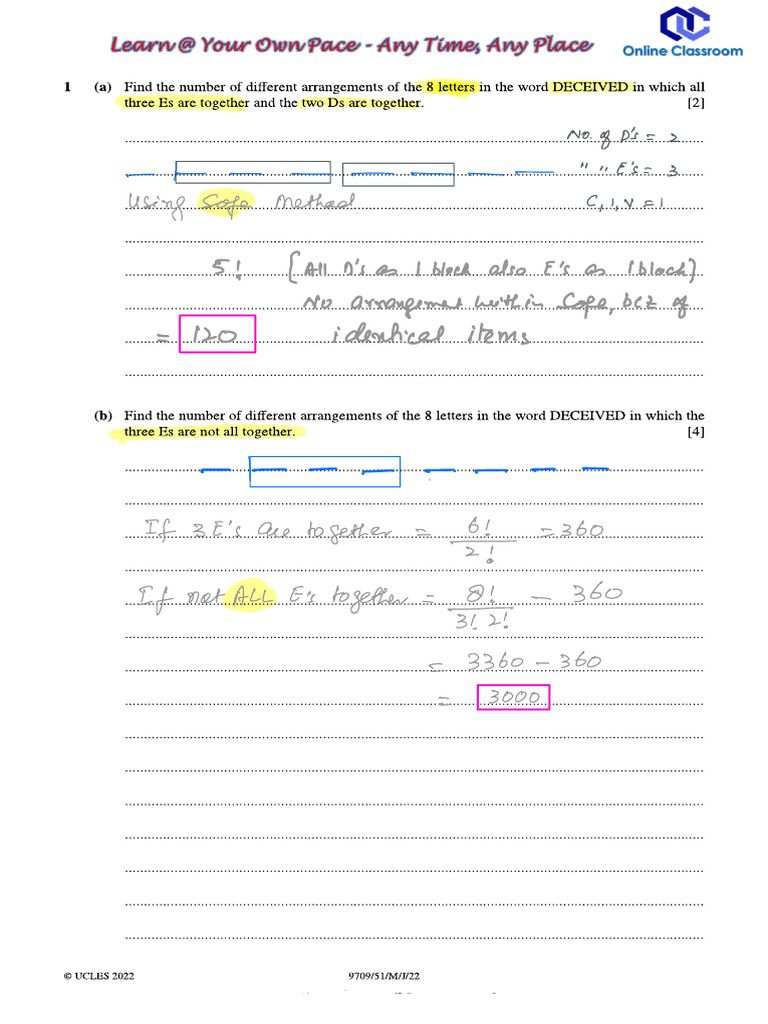 Learn @ Your Own Pace - Any Time, Any Place
Online Classroom
1 (a) Find the number of different arrangements of the 8 letters in the word DECEIVED in which all
three Es are together and the two Ds are together. [2]
No. of D's = 2
" " E's = 3
Using Sofa Method
C, I, V = 1
5! [All D's as 1 block also E's as 1 block]
No arrangement within Sofa, bcz of
= 120 identical items
(b) Find the number of different arrangements of the 8 letters in the word DECEIVED in which the
three Es are not all together. [4]
If 3 E's are together = 6!/2! = 360
If not ALL E's together = 8!/3! 2! - 360
= 3360 - 360
= 3000
© UCLES 2022 9709/51/M/J/22